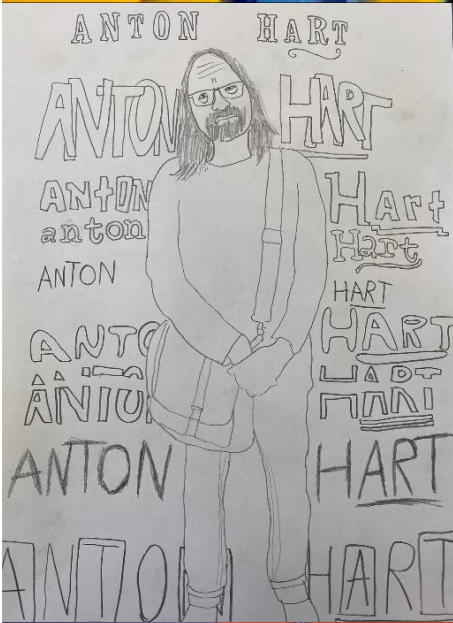 ANTON HART
ANTON HART
ANtON HArt
anton Hart
ANTON HART
ANTO HART
ANTO HART
ANTON HART
ANTON HART